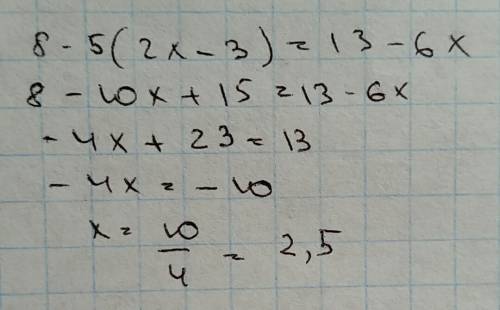 8 - 5(2x - 3) = 13 - 6x
8 - 10x + 15 = 13 - 6x
- 4x + 23 = 13
- 4x = - 10
x = 10/4 = 2,5